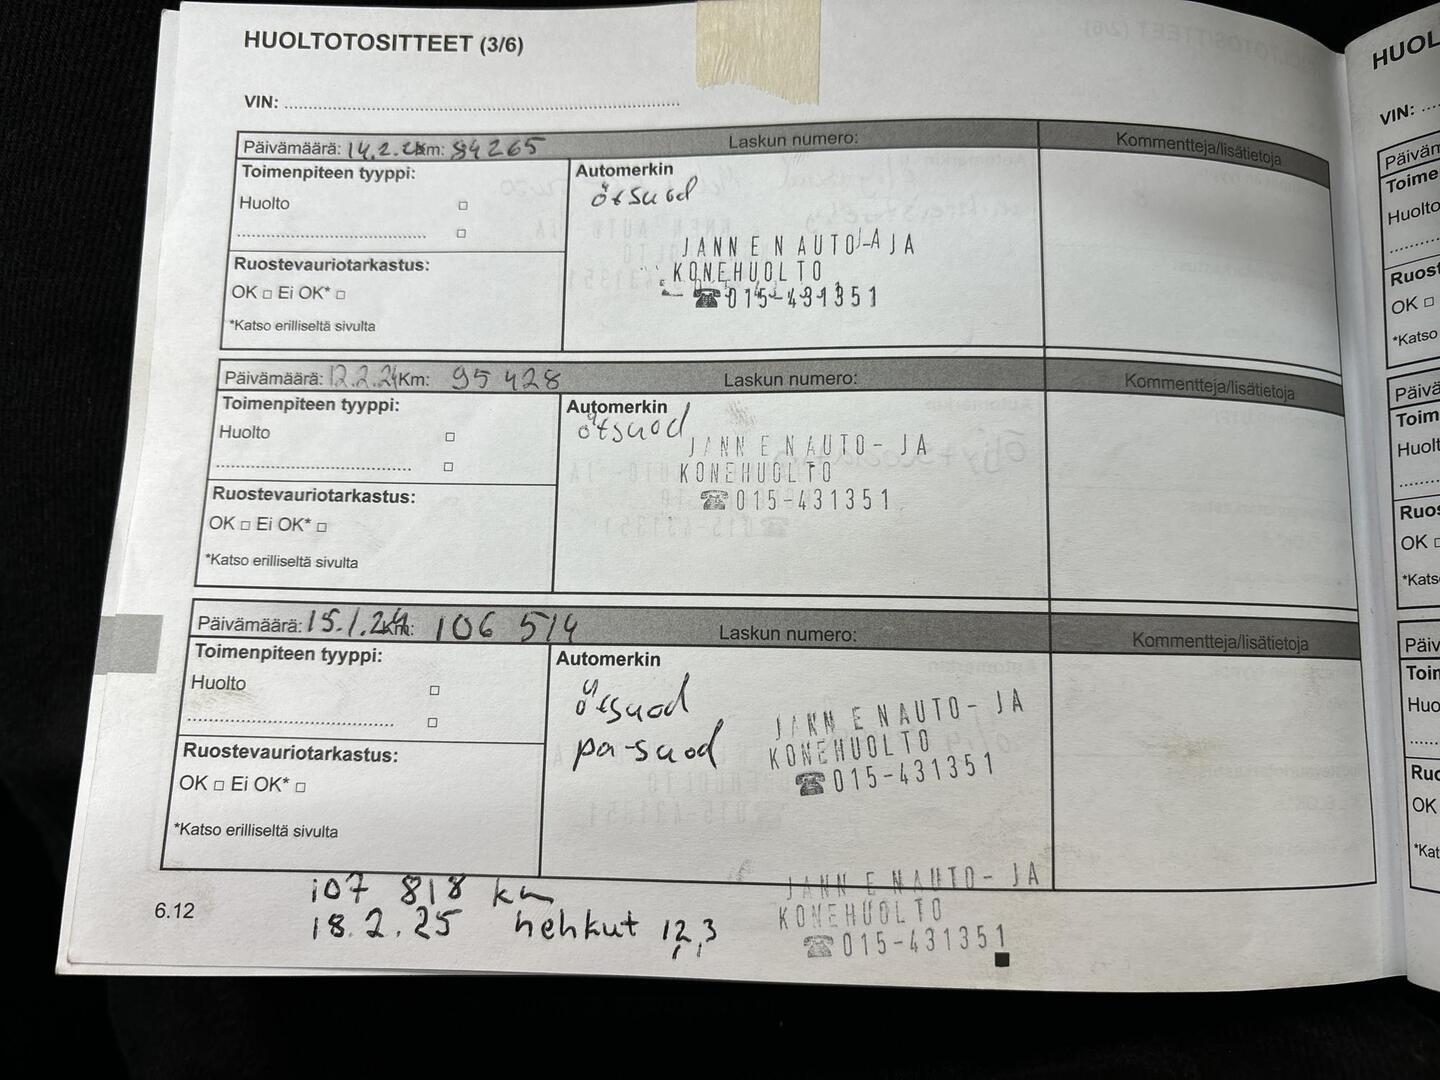 HUOLTOTOSITTEET (3/6)
VIN:
Päivämäärä: 14.2. Km: 84265 Laskun numero: Kommentteja/lisätietoja
Toimenpiteen tyyppi:
Huolto
Automerkin
ötsuod
JANN E N AUTO-JA
KONEHUOLTO
☎015-431351
Ruostevauriotarkastus:
OK □ Ei OK* □
*Katso erilliseltä sivulta
Päivämäärä: 12.2.24 Km: 95 428 Laskun numero: Kommentteja/lisätietoja
Toimenpiteen tyyppi:
Huolto
Automerkin
ötsuod
JANN E N AUTO- JA
KONEHUOLTO
☎015-431351
Ruostevauriotarkastus:
OK □ Ei OK* □
*Katso erilliseltä sivulta
Päivämäärä: 15.1.24 Km: 106 514 Laskun numero: Kommentteja/lisätietoja
Toimenpiteen tyyppi:
Huolto
Automerkin
ötsuod
pa-suod
JANN E N AUTO- JA
KONEHUOLTO
☎015-431351
Ruostevauriotarkastus:
OK □ Ei OK* □
*Katso erilliseltä sivulta
107 818 km
18.2.25 hehkut 12,3
JANN E N AUTO- JA
KONEHUOLTO
☎015-431351
6.12
HUOL
VIN:
Päiväm
Toime
Huolto
Ruost
OK □
*Katso
Päivä
Toim
Huolt
Ruos
OK
*Kats
Päiv
Toin
Huo
Ruo
OK
*Kat